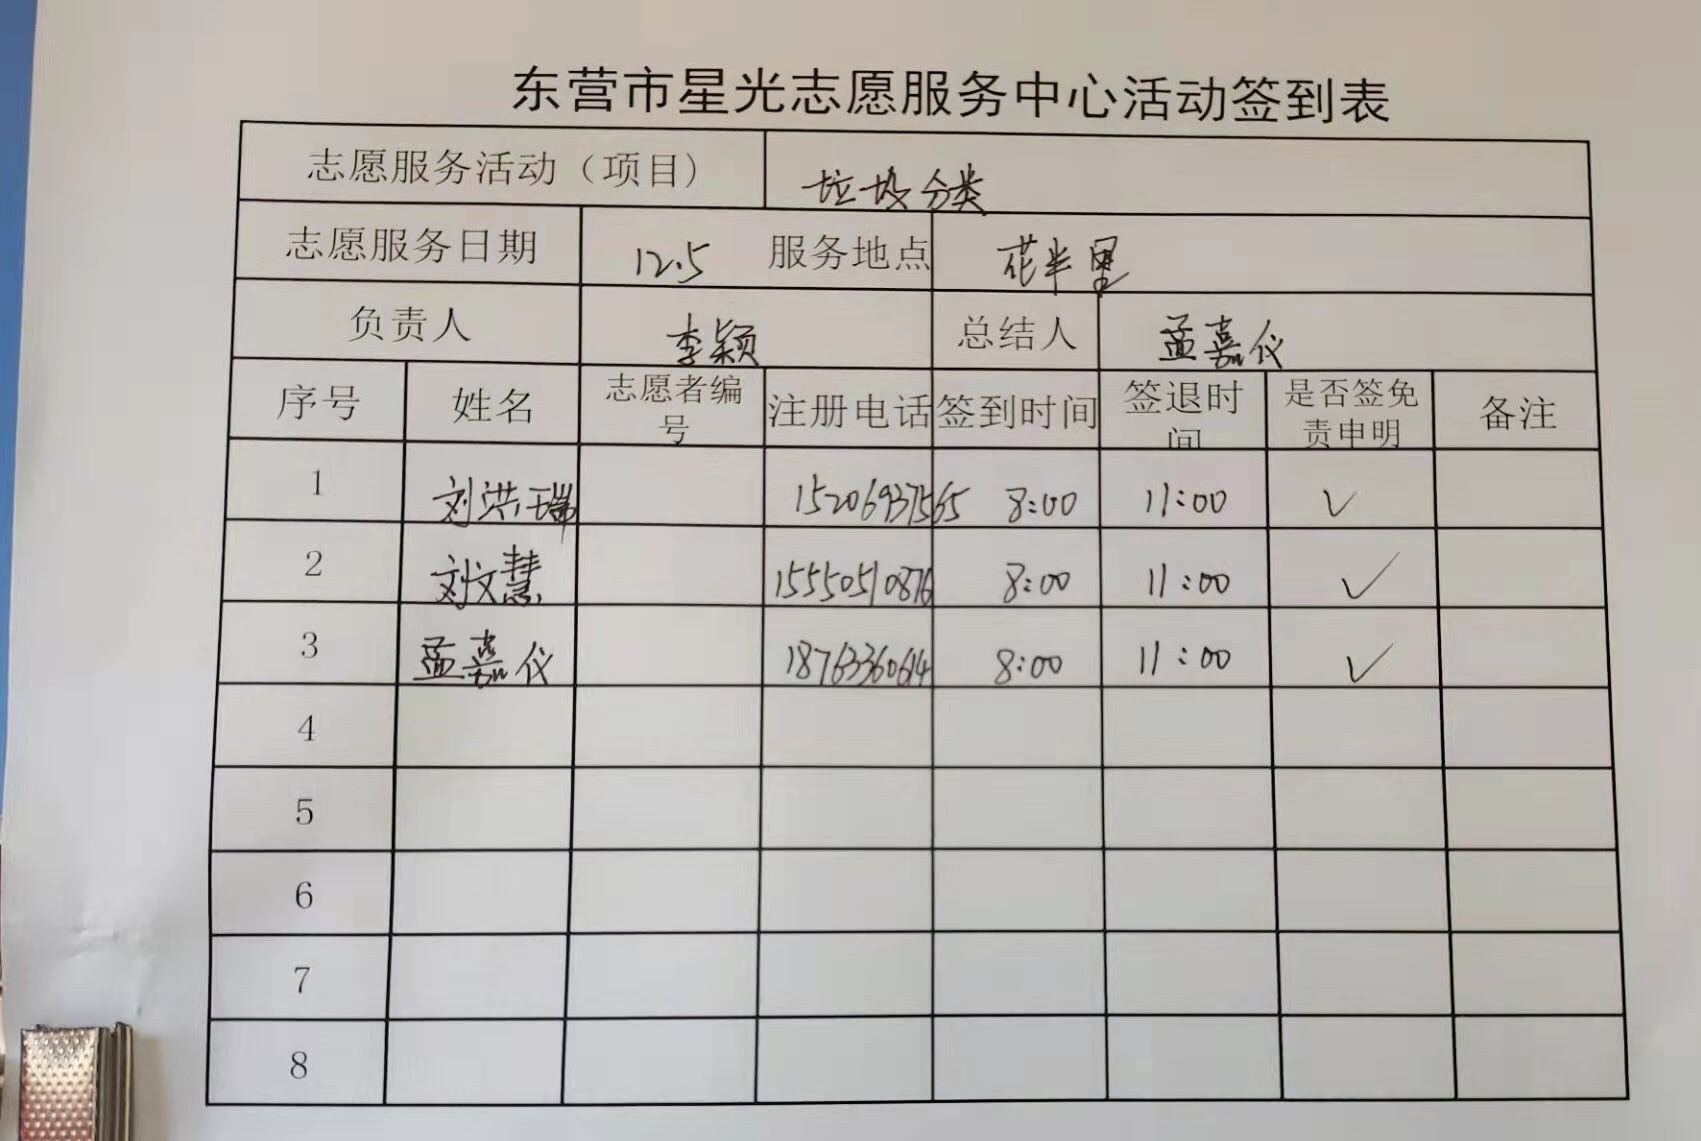 东营市星光志愿服务中心活动签到表
志愿服务活动（项目） 垃圾分类
志愿服务日期 12.5 服务地点 花半里
负责人 李颖 总结人 孟嘉仪
序号 姓名 志愿者编号 注册电话 签到时间 签退时间 是否签免责申明 备注
1 刘洪瑞 15206937565 8:00 11:00 ✓
2 刘文慧 15550510876 8:00 11:00 ✓
3 孟嘉仪 18763360614 8:00 11:00 ✓
4
5
6
7
8